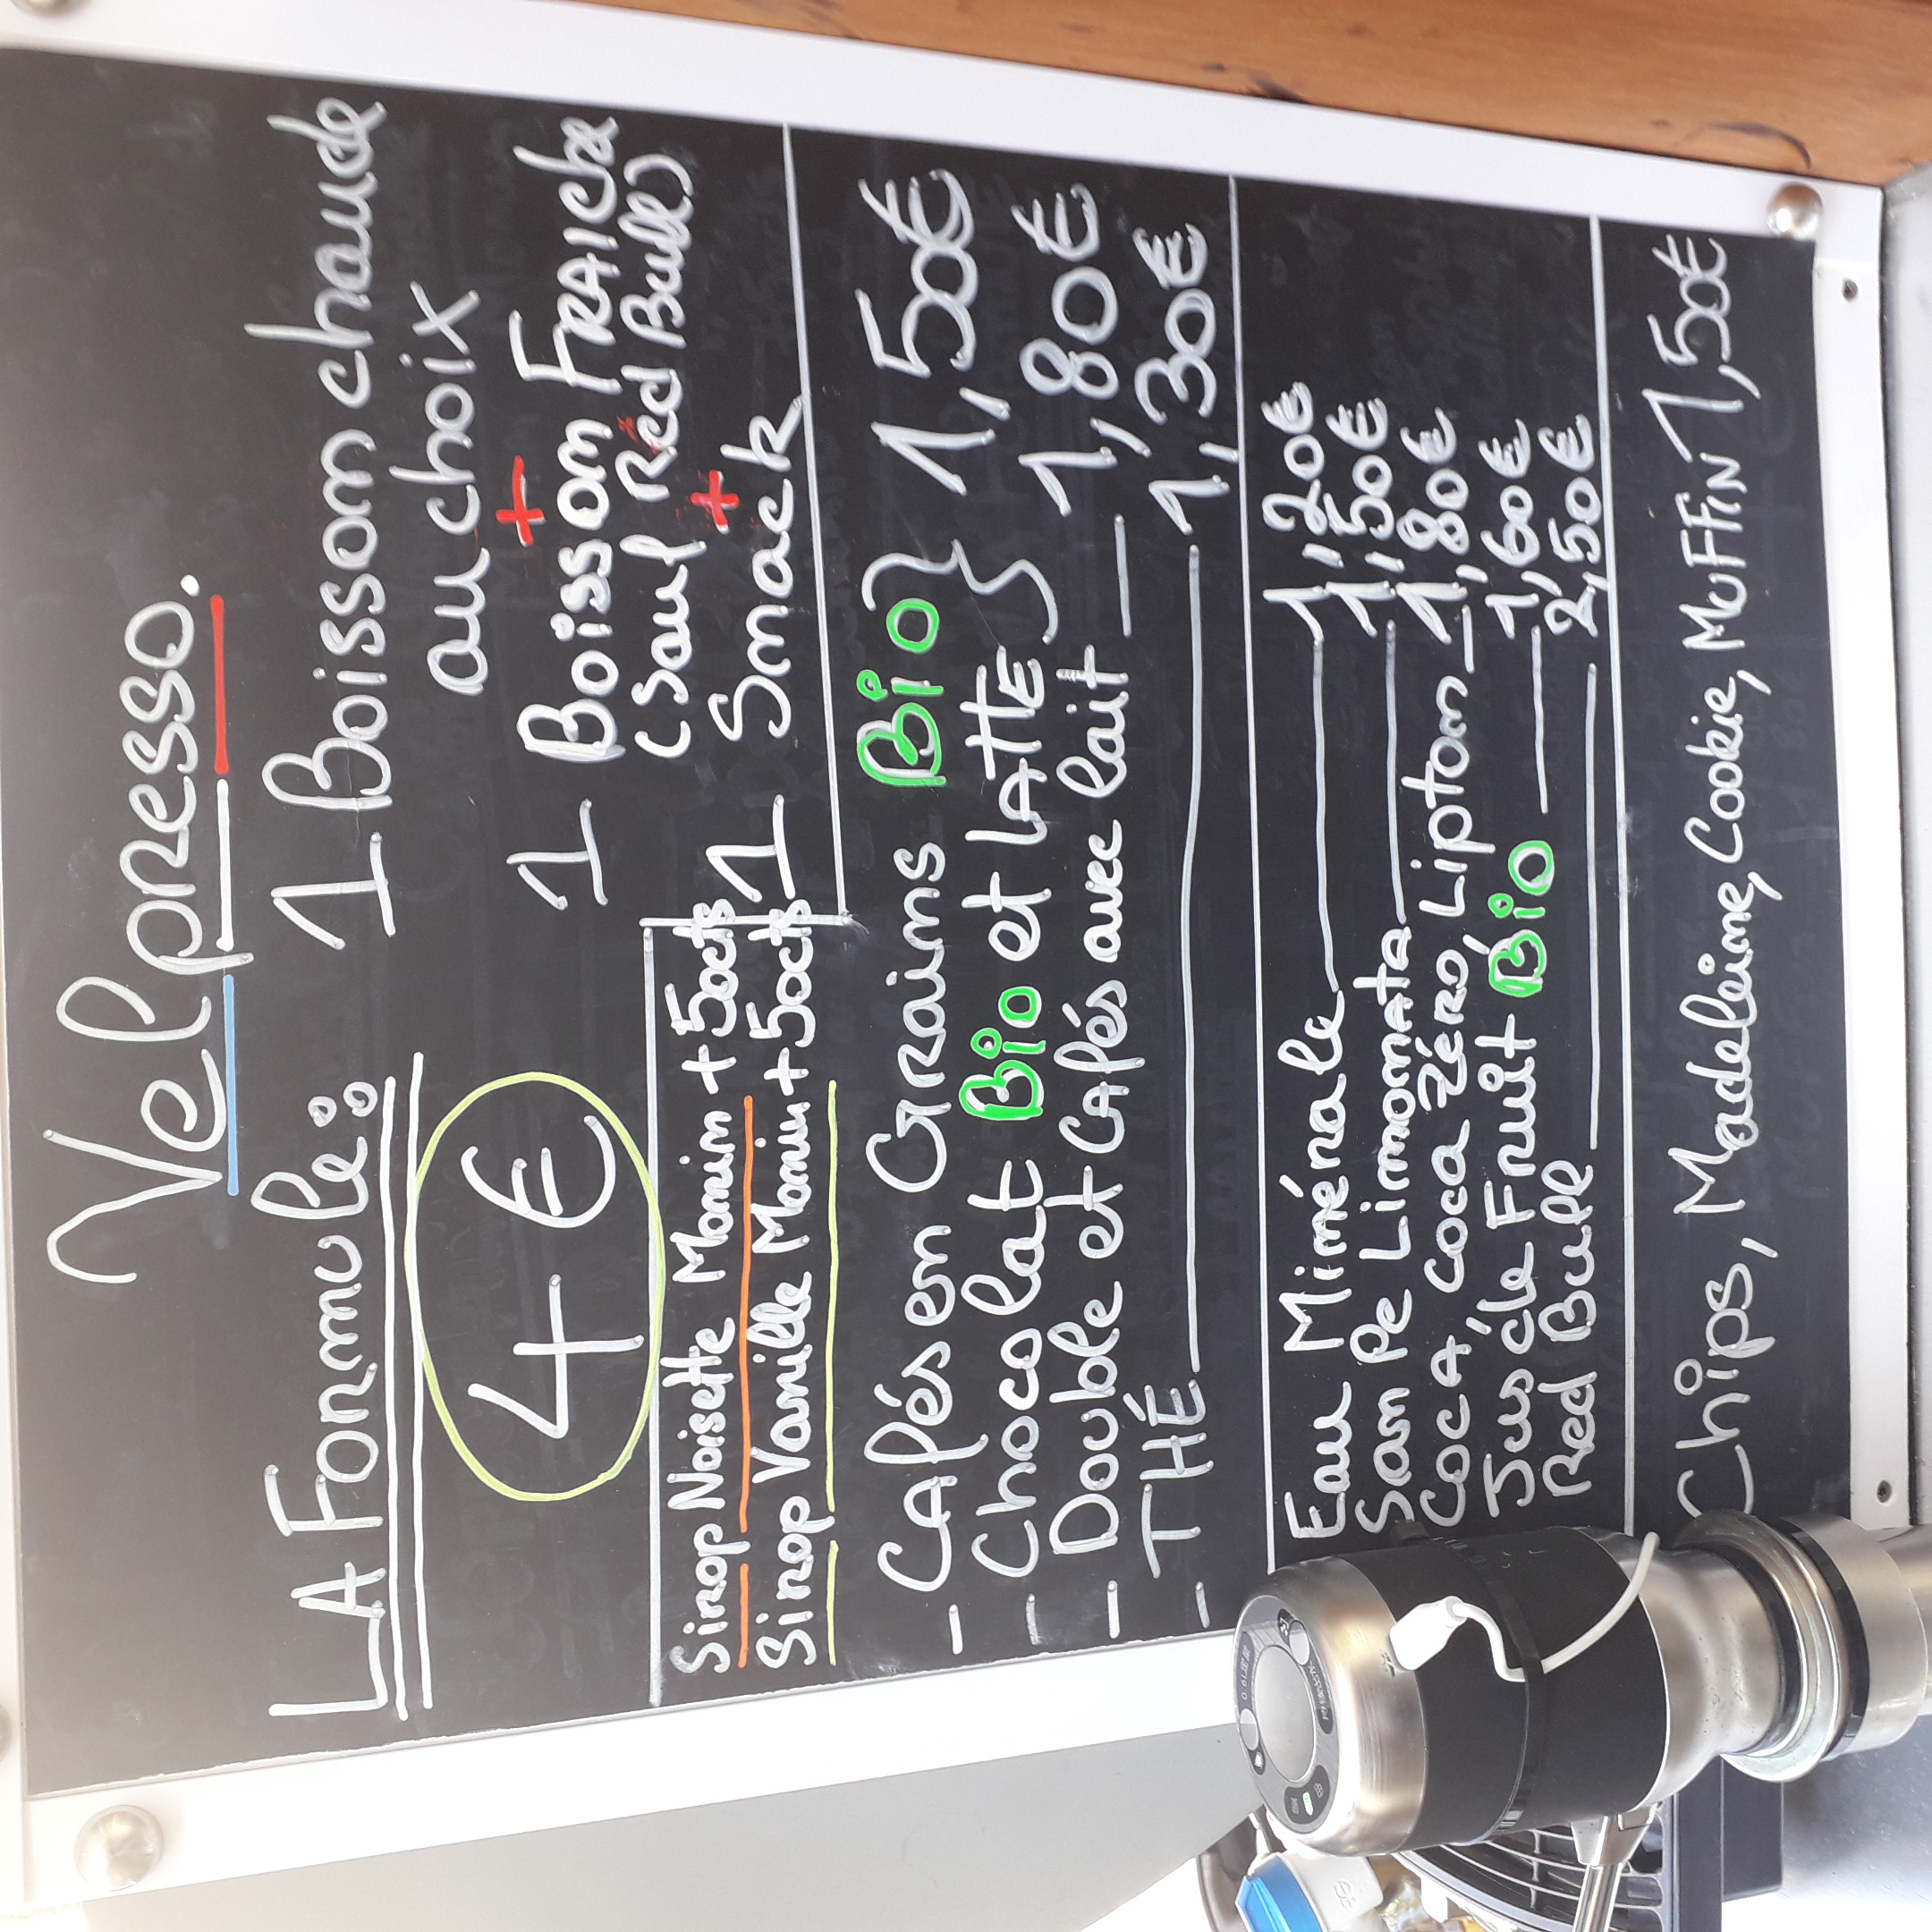 Velpresso.
LA Formule:
4€
1 Boisson chaude
au choix
+
1 Boisson FRAICHE
(Sauf Red Bull)
+
1 Snack
Sirop Noisette Monin +50cts
Sirop Vanille Monin +50cts
- CAfés en Grains Bio } 1,50€
- Chocolat Bio et LAttE
- Double et CAfés avec lait — 1,80€
- THÉ 1,30€
Eau Minérale 1,20€
San Pe Limonata 1,50€
CocA, coca Zéro, Lipton 1,80€
Jus de Fruit Bio 1,60€
Red Bull 2,50€
Chips, Madeleine, Cookie, MuFFiN 1,50€